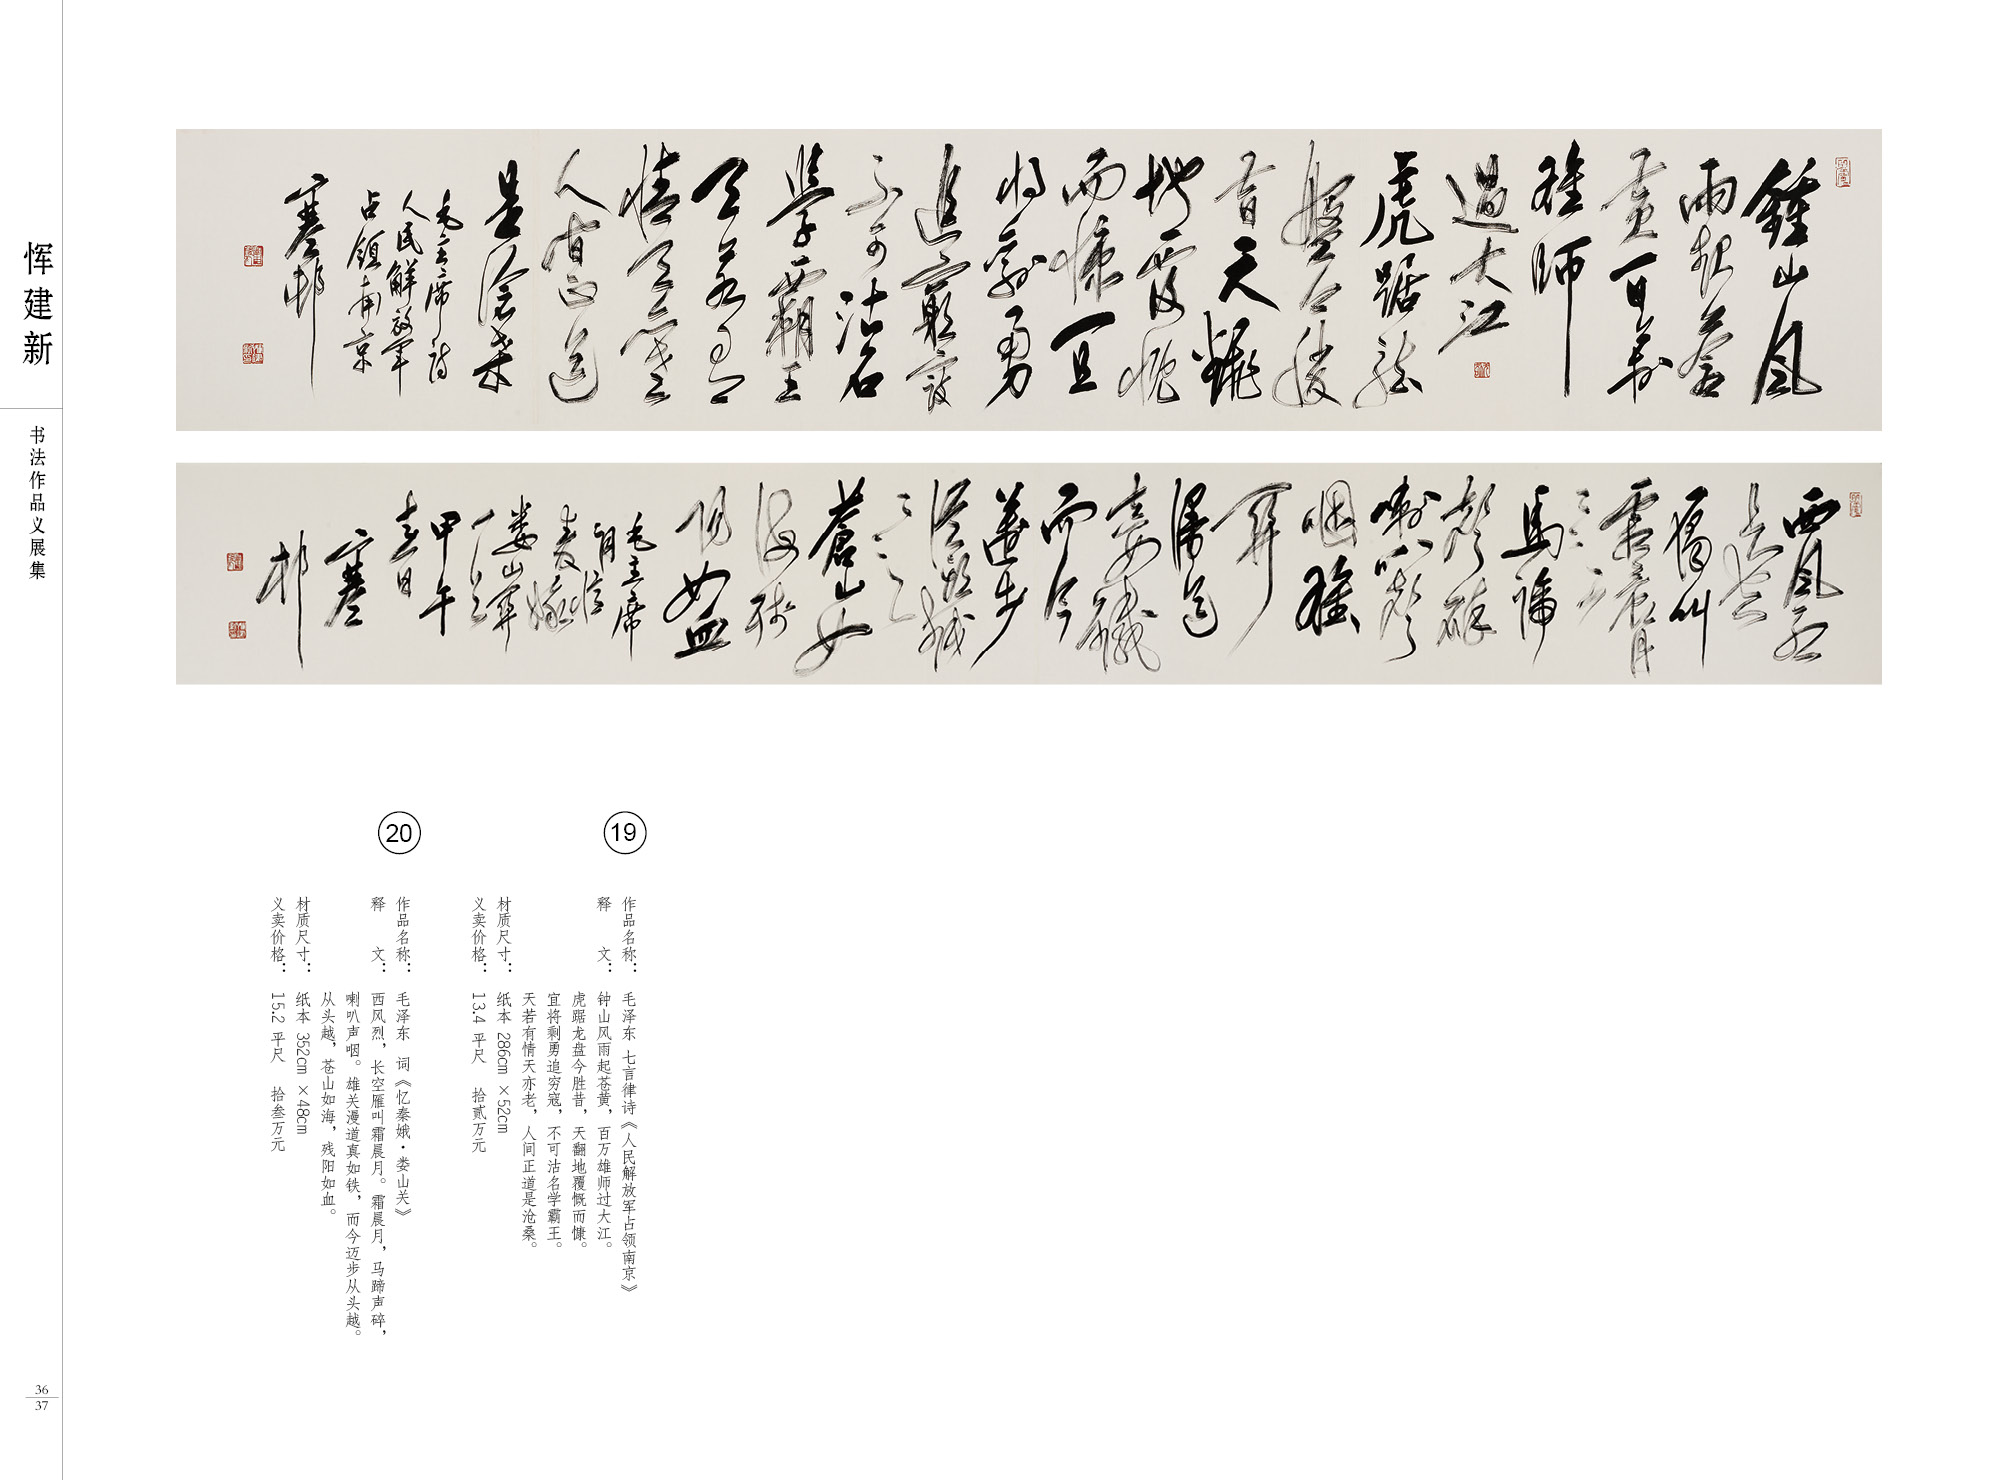 恽建新
书法作品义展集
鍾山風
雨起蒼
黃百萬
雄師
過大江
虎踞龍
盤今勝
昔天翻
地覆慨
而慷宜
将剩勇
追窮寇
不可沽名
學霸王
天若有
情天亦老
人间正道
是滄桑
毛主席詩
人民解放軍
占領南京
塞邨
西風烈
長空
雁叫
霜晨月
馬蹄
聲碎
喇叭聲
咽雄
関
漫道
真如鐵
而今
邁步
從頭越
蒼山如
海残
阳如血
毛主席
词憶
秦娥
娄山関
甲午
春日
塞
邨
19
作品名称： 毛泽东 七言律诗《人民解放军占领南京》
释 文： 钟山风雨起苍黄，百万雄师过大江。
虎踞龙盘今胜昔，天翻地覆慨而慷。
宜将剩勇追穷寇，不可沽名学霸王。
天若有情天亦老，人间正道是沧桑。
材质尺寸： 纸本 286cm ×52cm
义卖价格： 13.4 平尺 拾贰万元
20
作品名称： 毛泽东 词《忆秦娥·娄山关》
释 文： 西风烈，长空雁叫霜晨月。霜晨月，马蹄声碎，
喇叭声咽。雄关漫道真如铁，而今迈步从头越。
从头越，苍山如海，残阳如血。
材质尺寸： 纸本 352cm ×48cm
义卖价格： 15.2 平尺 拾叁万元
36
37